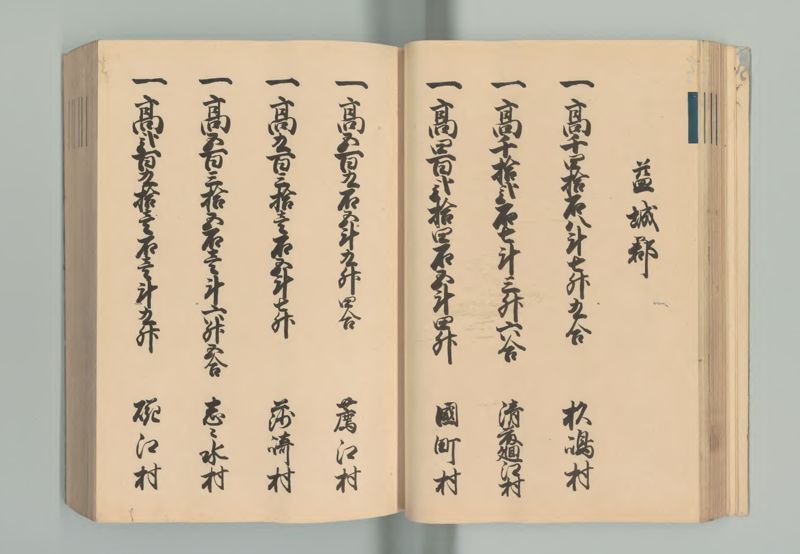 益城郡
一高千四拾石八斗七升五合 杉嶋村
一高千拾弐石七斗三升六合 清廻江村
一高四百弐拾四石五斗四升 國町村
一高五百五石五斗九升四合 薦江村
一高九百三拾壱石五斗七升 莎崎村
一高五百三拾五石壱斗六升五合 志々水村
一高弐百九拾壱石壱斗九升 硴江村